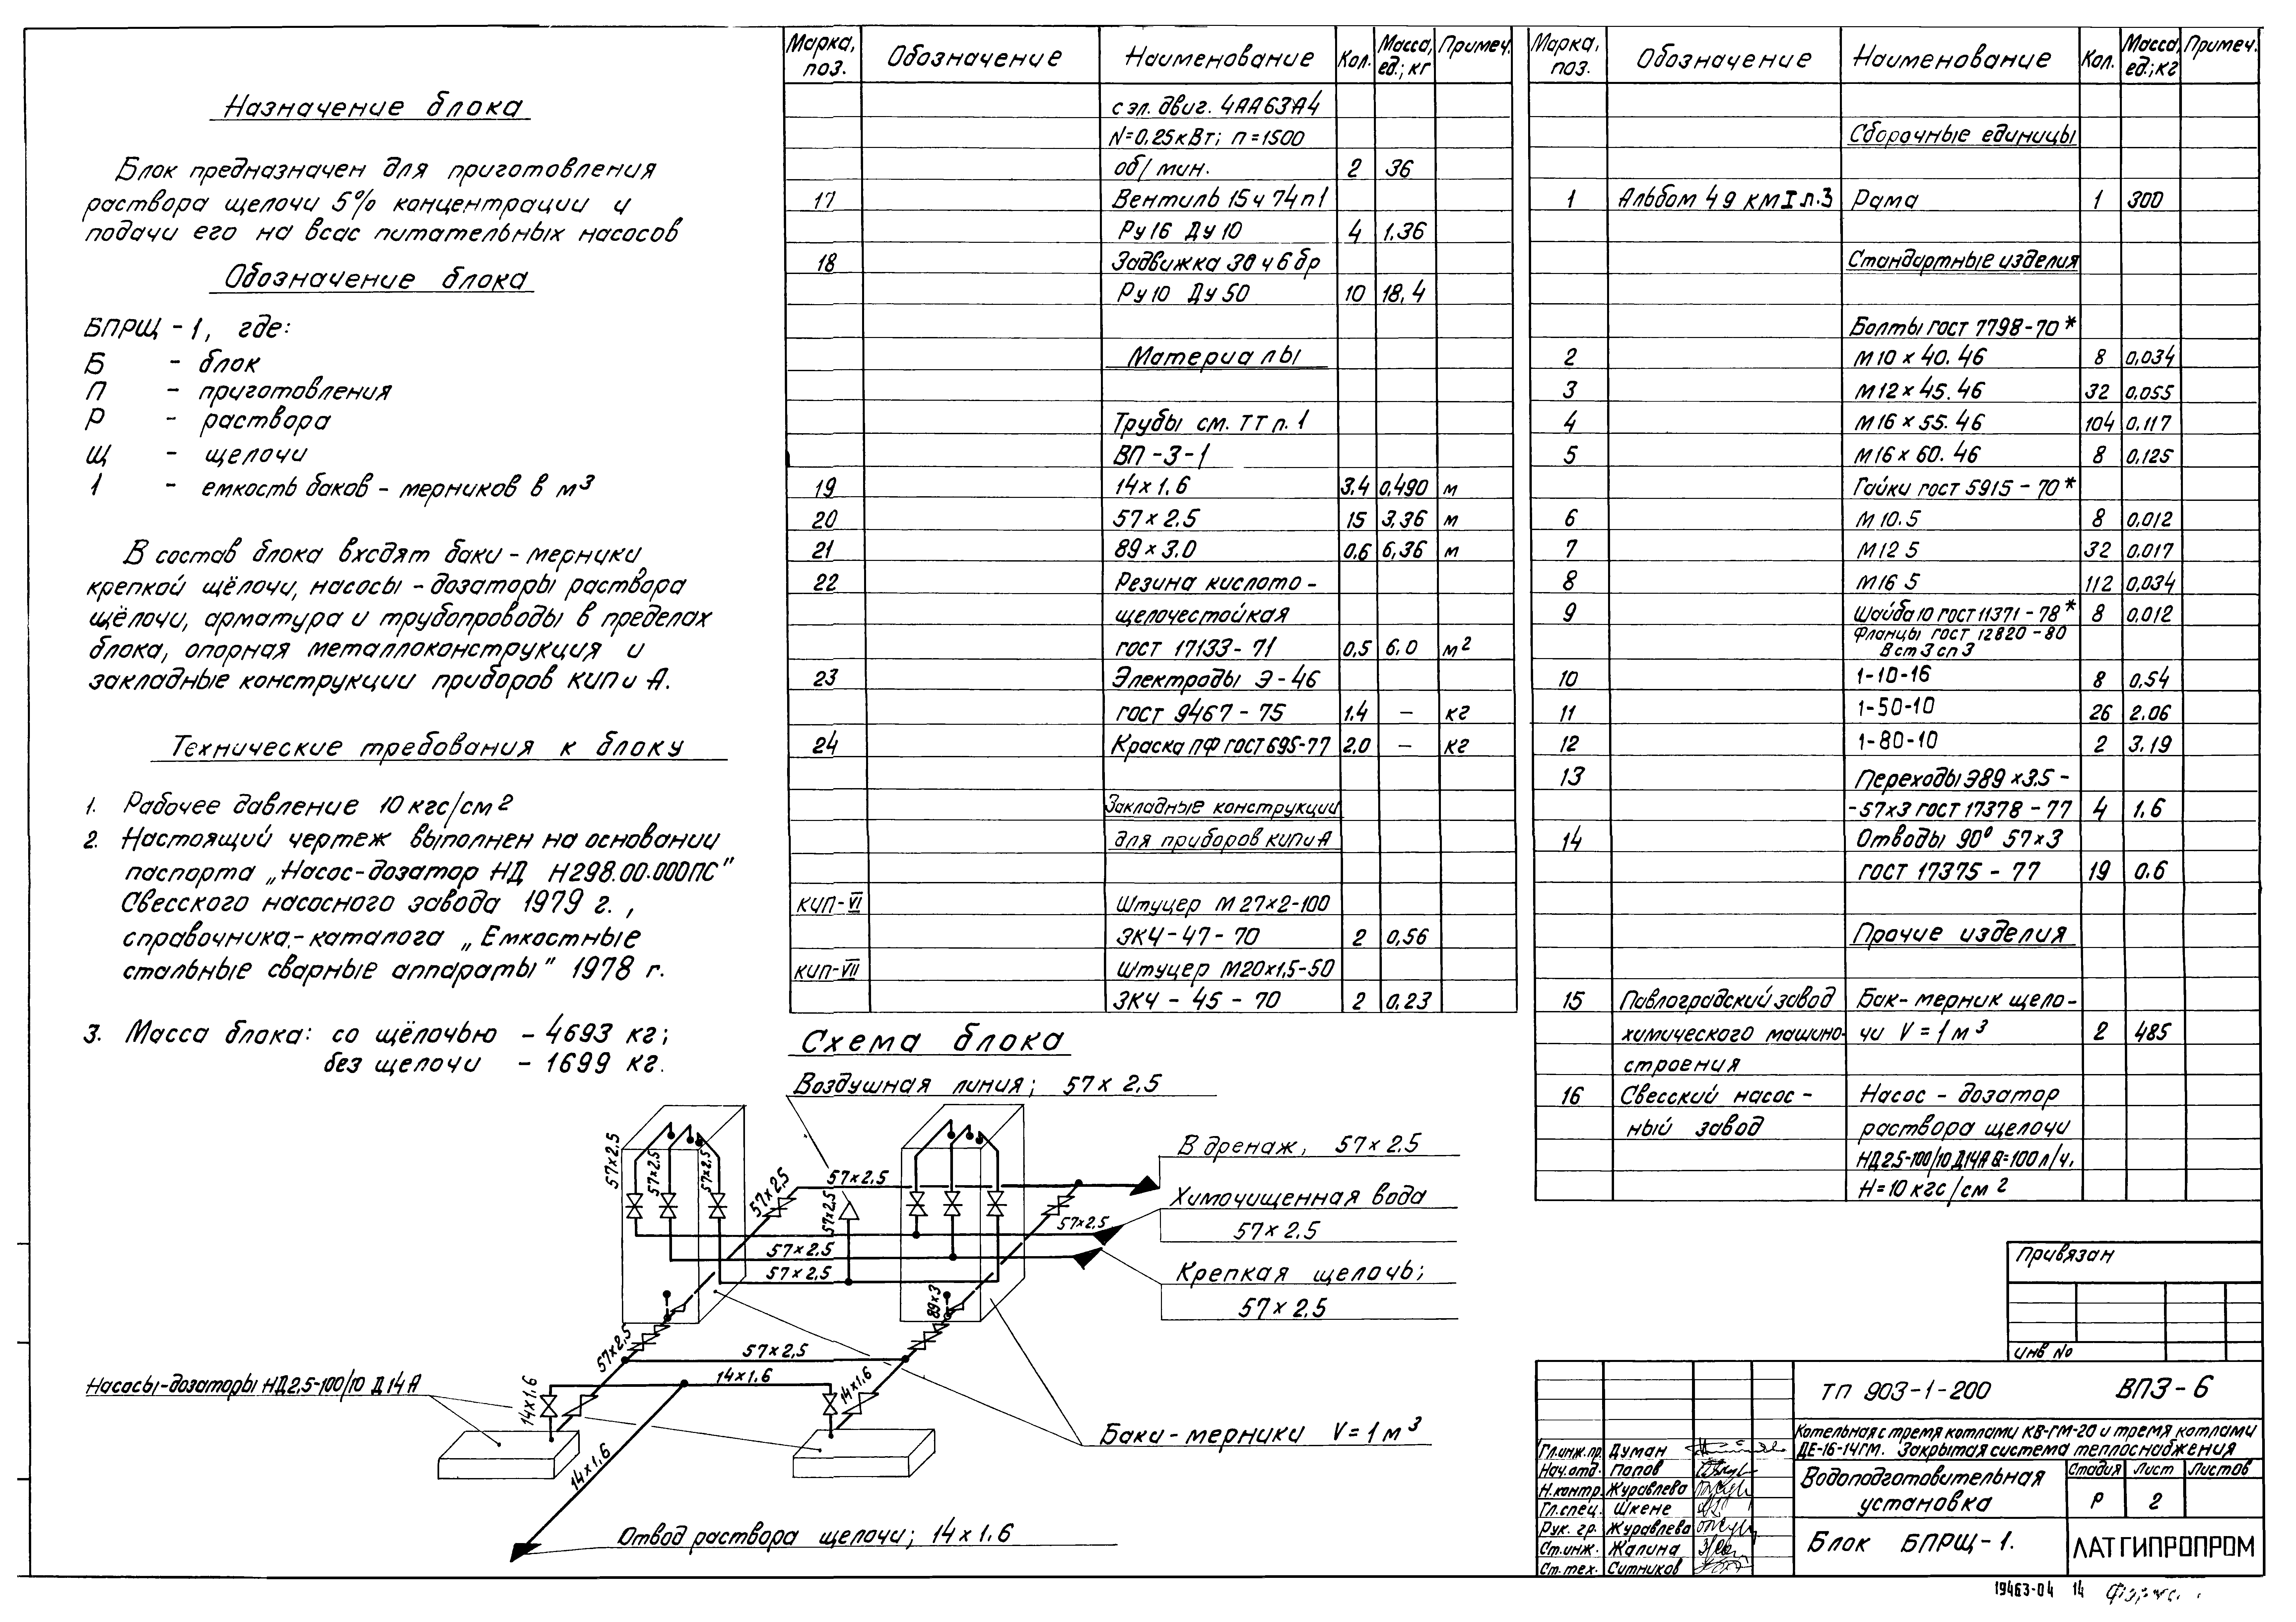 Назначение блока
Блок предназначен для приготовления
раствора щелочи 5% концентрации и
подачи его на всас питательных насосов
Обозначение блока
БПРЩ-1, где:
Б - блок
П - приготовления
Р - раствора
Щ - щелочи
1 - емкость баков-мерников в м³
В состав блока входят баки-мерники
крепкой щёлочи, насосы-дозаторы раствора
щёлочи, арматура и трубопроводы в пределах
блока, опорная металлоконструкция и
закладные конструкции приборов КИП и А.
Технические требования к блоку
1. Рабочее давление 10 кгс/см²
2. Настоящий чертеж выполнен на основании
паспорта „Насос-дозатор НД Н298.00.000ПС"
Свесского насосного завода 1979 г.,
справочника-каталога „Емкостные
стальные сварные аппараты" 1978 г.
3. Масса блока: со щёлочью - 4693 кг;
без щелочи - 1699 кг.
Марка, поз. Обозначение Наименование Кол. Масса, ед.; кг Примеч.
с эл. двиг. 4АА63А4
N=0,25кВт; n=1500
об/мин. 2 36
17 Вентиль 15ч 74п1
Ру16 Ду10 4 1,36
18 Задвижка 30ч6бр
Ру10 Ду50 10 18,4
Материалы
Трубы см. ТТ п. 1
ВП-3-1
19 14×1.6 3.4 0,490 м
20 57×2.5 15 3,36 м
21 89×3.0 0,6 6,36 м
22 Резина кислото-
щелочестойкая
ГОСТ 17133-71 0,5 6.0 м²
23 Электроды Э-46
ГОСТ 9467-75 1.4 – кг
24 Краска ПФ ГОСТ 695-77 2,0 – кг
Закладные конструкции
для приборов КИП и А
КИП-VI Штуцер М27×2-100
ЗКЧ-47-70 2 0,56
КИП-VII Штуцер М20×1,5-50
ЗКЧ-45-70 2 0,23
Марка, поз. Обозначение Наименование Кол. Масса, ед.; кг Примеч.
Сборочные единицы
1 Альбом 4 9 КМI л.3 Рама 1 300
Стандартные изделия
Болты ГОСТ 7798-70*
2 М10×40.46 8 0,034
3 М12×45.46 32 0,055
4 М16×55.46 104 0,117
5 М16×60.46 8 0,125
Гайки ГОСТ 5915-70*
6 М10.5 8 0,012
7 М12 5 32 0,017
8 М16 5 112 0,034
9 Шайба 10 ГОСТ 11371-78* 8 0,012
Фланцы ГОСТ 12820-80
В ст 3 сп 3
10 1-10-16 8 0,54
11 1-50-10 26 2.06
12 1-80-10 2 3,19
13 Переходы Э89×3.5-
-57×3 ГОСТ 17378-77 4 1.6
14 Отводы 90° 57×3
ГОСТ 17375-77 19 0.6
Прочие изделия
15 Павлоградский завод Бак-мерник щело-
химического машино- чи V=1м³ 2 485
строения
16 Свесский насос- Насос-дозатор
ный завод раствора щелочи
НД2,5-100/10 Д14А Q=100 л/ч,
Н=10 кгс/см²
Схема блока
Воздушная линия; 57×2,5
57×2,5
57×2,5
57×2,5
57×2,5
57×2,5
57×2,5
В дренаж, 57×2.5
Химочищенная вода
57×2.5
57×2,5
57×2,5
57×2,5
Крепкая щелочь;
57×2,5
89×3
57×2,5
57×2,5
14×1.6
14×1.6
14×1.6
Насосы-дозаторы НД2,5-100/10 Д14А
Баки-мерники V=1м³
14×1.6
Отвод раствора щелочи; 14×1.6
Привязан
Инв №
ТП 903-1-200 ВПЗ-6
Котельная с тремя котлами КВ-ГМ-20 и тремя котлами
ДЕ-16-14ГМ. Закрытая система теплоснабжения
Гл.инж.пр. Думан
Нач.отд. Попов
Н.контр. Журавлева
Гл.спец. Шкене
Рук. гр. Журавлева
Ст.инж. Жалина
Ст.тех. Ситников
Водоподготовительная
установка
Стадия Лист Листов
Р 2
Блок БПРЩ-1.
ЛАТГИПРОПРОМ
19463-04 14